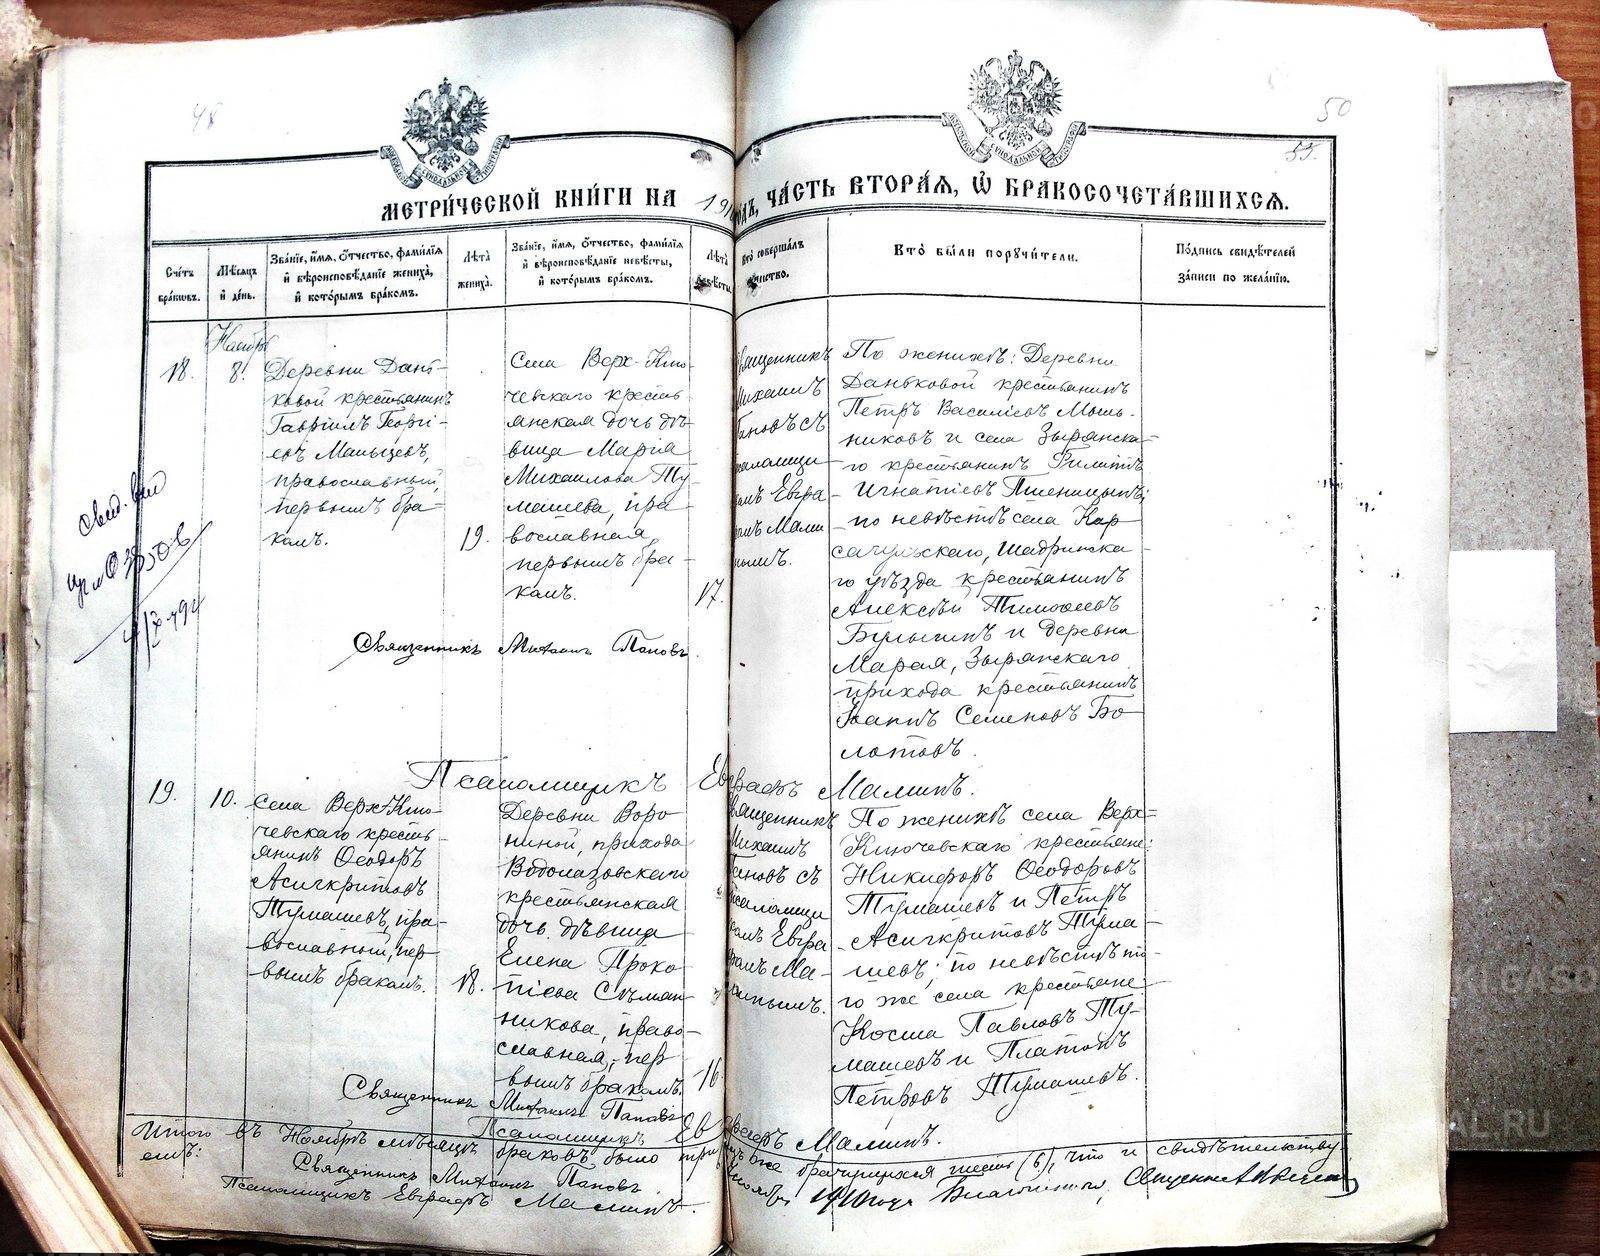 48
50
55.
МЕТРИ́ЧЕСКОЙ КНИ́ГИ НА 1910 ГОДЪ, ЧА́СТЬ ВТОРА́Я, Ѡ҆ БРАКОСОЧЕТА́ВШИХСЯ.
Сче́тъ бра́ковъ.
Мѣ́сяцъ и҆ де́нь.
Зва́нїе, и҆́мя, ѻ҆́тчество, фами́лїя и҆ вѣроисповѣ́данїе жениха̀, и҆ кото́рымъ бра́комъ.
Лѣ́та жениха̀.
Зва́нїе, и҆́мя, ѻ҆́тчество, фами́лїя и҆ вѣроисповѣ́данїе невѣ́сты, и҆ кото́рымъ бра́комъ.
Лѣ́та невѣ́сты.
Кто̀ соверша́лъ таинство.
Кто̀ бы́ли поручи́тели.
По́дпись свидѣ́телей за́писи по жела́нїю.
18.
Ноябрь
8.
Деревни Дань-
ковой крестьянинъ
Гавріилъ Георгі-
евъ Мальцевъ,
православный,
первымъ бра-
комъ.
19.
Села Верх-Клю-
чевскаго кресть-
янская дочь дѣ-
вица Марія
Михаилова Ту-
машева, пра-
вославная,
первымъ бра-
комъ.
17.
Священникъ
Михаилъ
Поповъ съ
псаломщи-
комъ Евгра-
фомъ Мали-
нымъ.
По женихѣ: Деревни
Даньковой крестьянинъ
Петръ Василіевъ Мыль-
никовъ и села Зырянска-
го крестьянинъ Филиппъ
Игнатіевъ Пшеницынъ;
по невѣстѣ села Кар-
сачульскаго, Шадринска-
го уѣзда крестьянинъ
Алексѣй Тимофеевъ
Булыгинъ и деревни
Марая, Зырянскаго
прихода крестьянинъ
Іоаннъ Семеновъ Бо-
лотовъ.
Священникъ Михаилъ Поповъ.
Псаломщикъ Евграфъ Малинъ.
19.
10.
Села Верх-Клю-
чевскаго кресть-
янинъ Ѳеодоръ
Асигкритовъ
Тумашевъ, пра-
вославный, пер-
вымъ бракомъ.
18.
Деревни Воро-
ниной, прихода
Водолазовскаго
крестьянская
дочь дѣвица
Елена Проко-
піева Съман-
никова, право-
славная, пер-
вымъ бракомъ.
16.
Священникъ
Михаилъ
Поповъ съ
псаломщи-
комъ Евгра-
фомъ Ма-
линымъ.
По женихѣ села Верх-
Ключевскаго крестьяне:
Никифоръ Ѳеодоровъ
Тумашевъ и Петръ
Асигкритовъ Тума-
шевъ; по невѣстѣ то-
го же села крестьяне
Косма Павловъ Ту-
машевъ и Платонъ
Петровъ Тумашевъ.
Священникъ Михаилъ Поповъ
Псаломщикъ Евграфъ Малинъ.
Итого въ Ноябрѣ мѣсяцѣ браковъ было три, брачущихся шесть (6), что и свидѣтельству-
емъ:
Священникъ Михаилъ Поповъ
Псаломщикъ Евграфъ Малинъ.
1910 года Благочинный, Священн